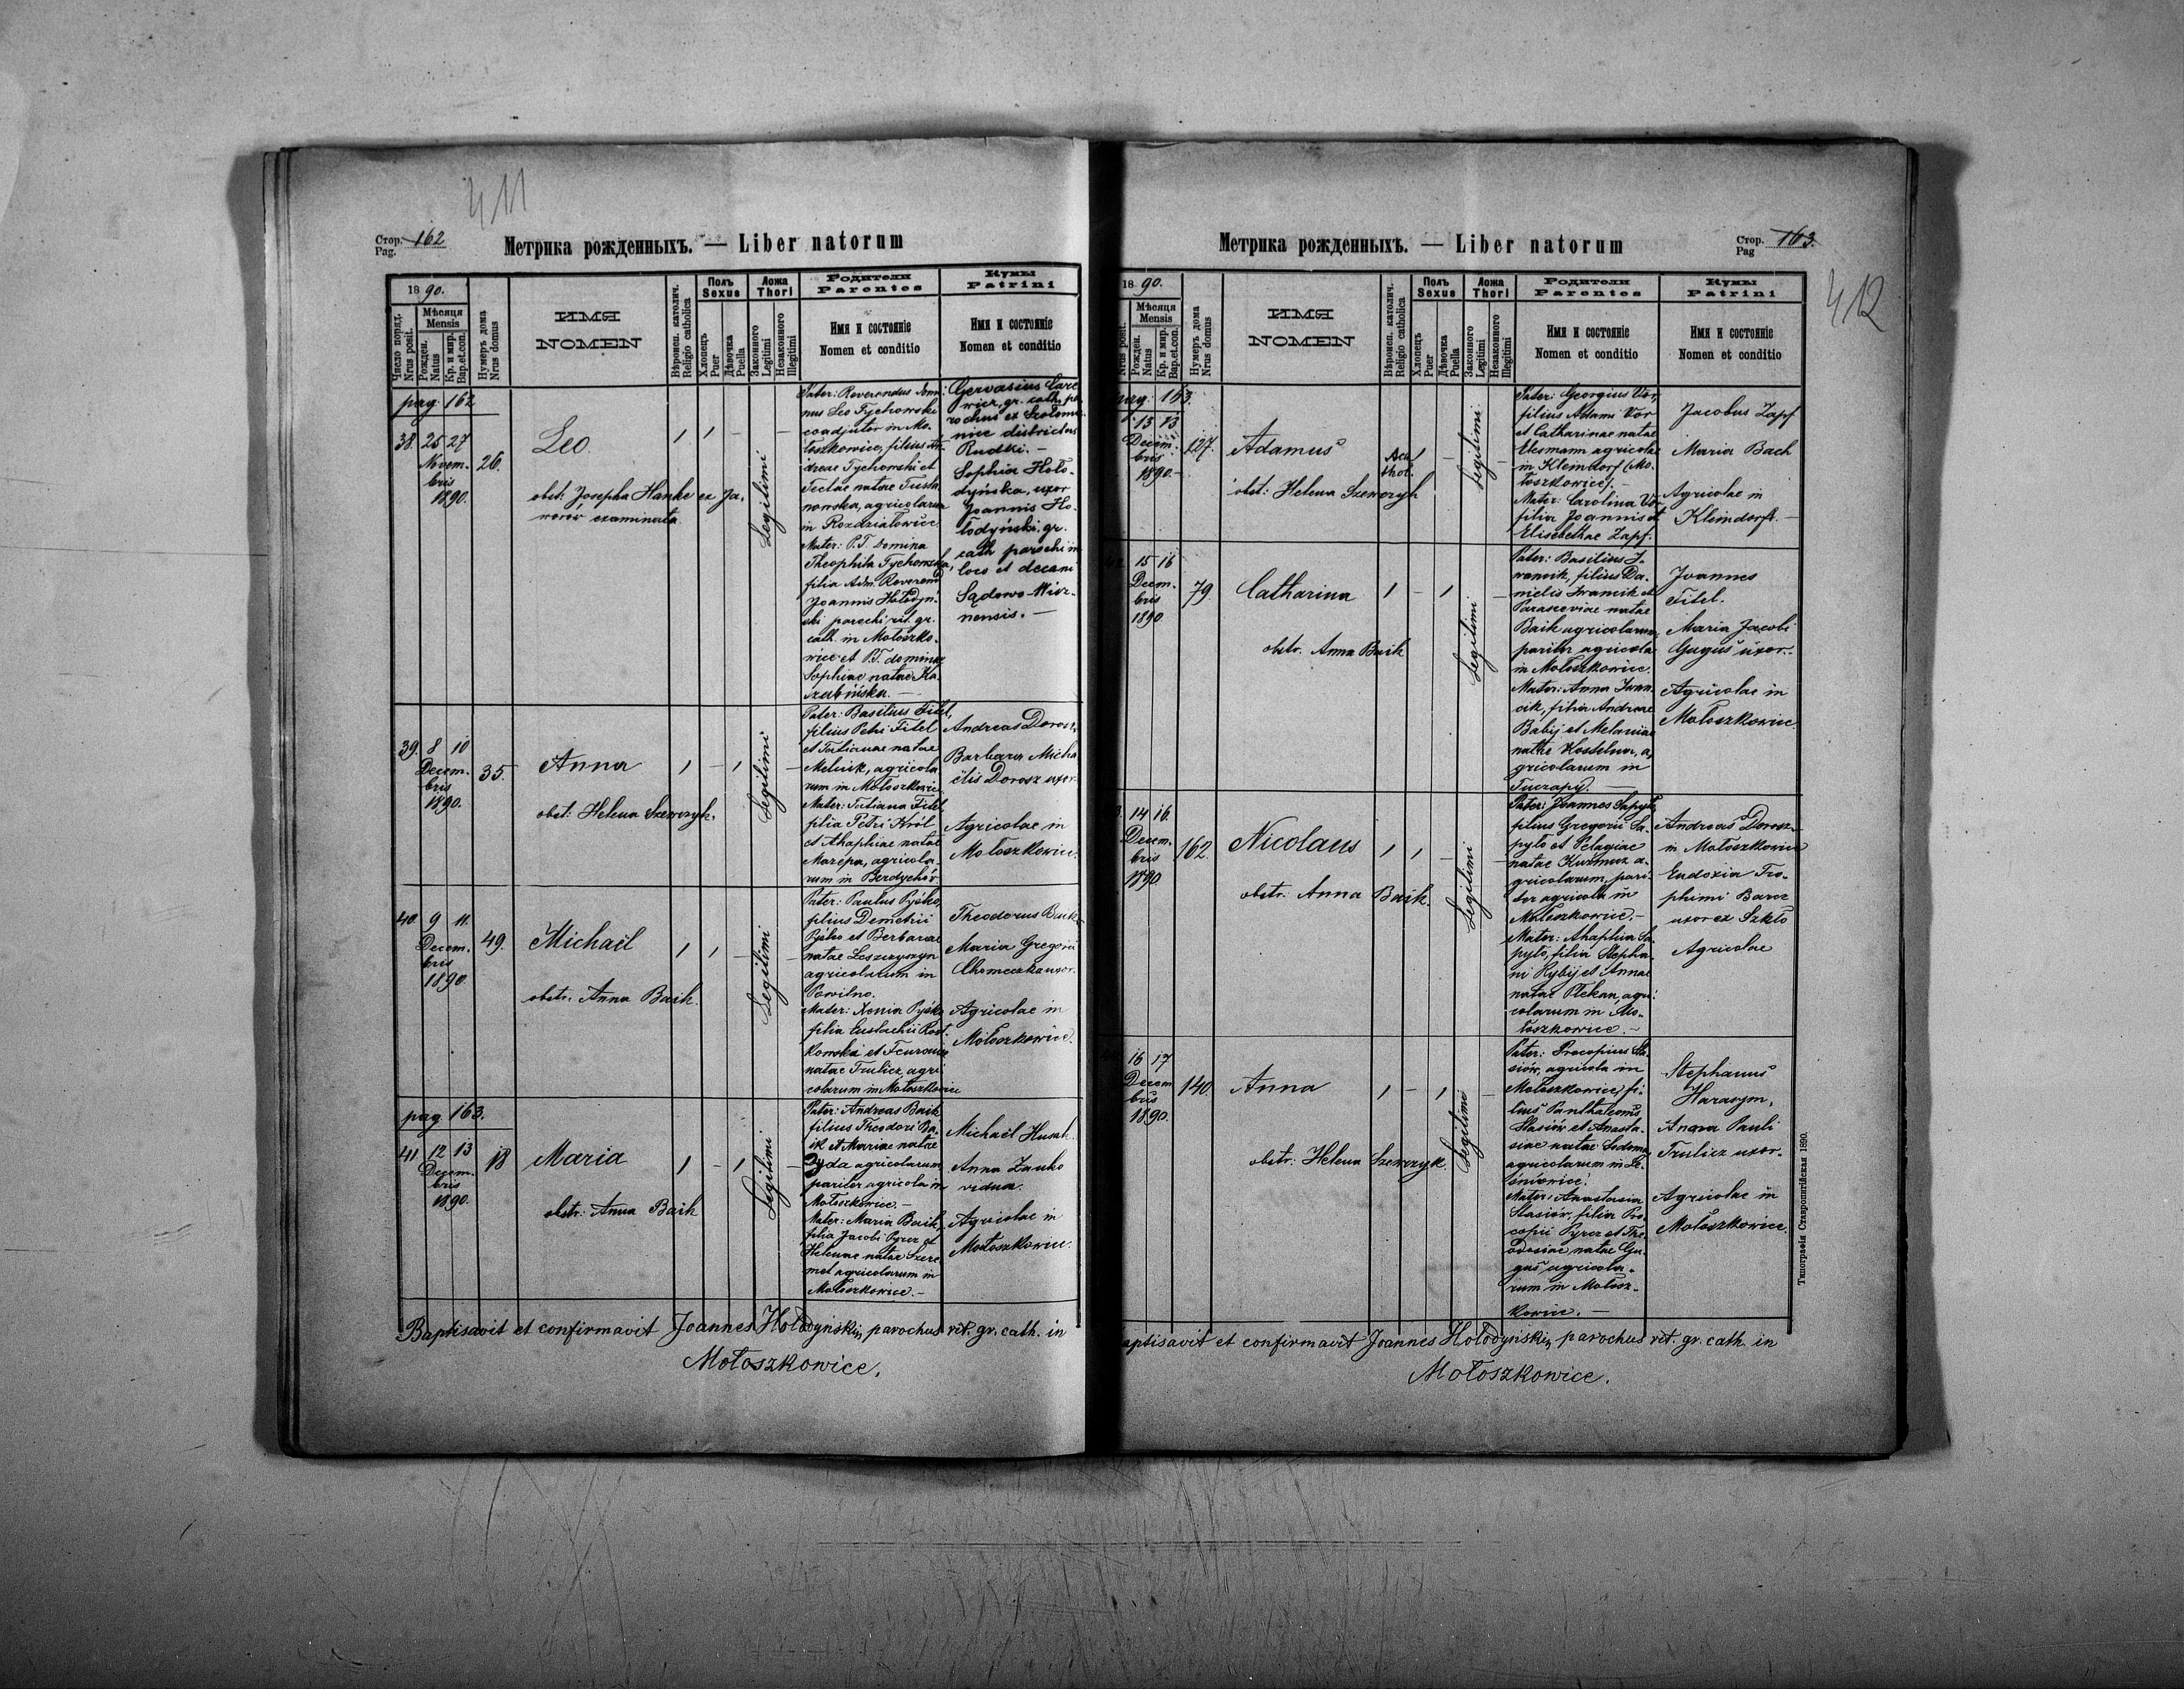 411
Стор. 162
Pag.
Метрика рожденныхъ. — Liber natorum
1890.
Число поряд.
Nrus posit.
Мѣсяця
Mensis
Рожден.
Natus
Кр. и мир.
Bap. et con.
Нумеръ дома
Nrus domus
ИМЯ
NOMEN
Вѣроисп. католич.
Religio catholica
Полъ
Sexus
Хлопецъ
Puer
Дѣвочка
Puella
Ложа
Thori
Законного
Legitimi
Незаконного
Illegitimi
Родители
Parentes
Имя и состояніе
Nomen et conditio
Кумы
Patrini
Имя и состояніе
Nomen et conditio
pag. 162
38. 25 27
Novem-
bris
1890.
26.
Leo.
obst: Josepha Hanke ex Ja-
worów examinata
1 1 -
Legitimi
-
Pater: Reverendus Domi-
nus Leo Tychowski
coadjutor in Mo-
łoszkowice, filius An-
dreae Tychowski et
Teclae natae Tusta-
nowska, agricolarum
in Rozdziałowice
Mater: P.T. Domina
Theophila Tychowska,
filia Adm. Reverend
Joannis Hołodyń-
ski parochi rit. gr.
cath. in Mołoszko-
wice et P.T. dominae
Sophiae natae Ko-
szubińska. —
Gervasius Care
wicz, gr. cath. pa
rochus ex Szołomi-
nice districtus
Rudki. -
Sophia Hoło-
dyńska, uxor
Joannis Ho-
łodyński, gr.
cath parochi in
loco et decani
Sądowo-Wisz-
nensis. —
39. 8 10
Decem-
bris
1890.
35.
Anna
obst: Helena Szewczyk.
1 - 1
Legitimi
-
Pater: Basilius Fitel,
filius Petri Fitel
et Tatianae natae
Melnik, agricola-
rum in Mołoszkowice
Mater: Tatiana Fitel
filia Petri Król
et Ahaphiae natae
Mazepa, agricola-
rum in Berdychów
Andreas Dorosz,
Barbara Micha
ëlis Dorosz uxor
Agricolae in
Mołoszkowice.
40. 9 11.
Decem-
bris
1890.
49.
Michaël
obstr. Anna Baik.
1 1 -
Legitimi
-
Pater: Paulus Pyśko,
filius Demetrii
Pyśko et Barbarae
natae Leszczyszyn
agricolarum in
Powitno.
Mater: Xenia Pyśko
filia Eustachii Rost-
kowski et Fevroniae
natae Trulicz, agri
colarum in Mołoszkowice
Theodorus Baik
Maria Gregorii
Chrmeczka uxor.
Agricolae in
Mołoszkowice.
pag. 163.
41. 12 13
Decem-
bris
1890.
18
Maria
obstr: Anna Baik
1 - 1
Legitimi
-
Pater: Andreas Baik
filius Theodori Ba-
ik et Mariae natae
Dyda agricolarum
pariter agricola in
Mołoszkowice. -
Mater: Maria Baik,
filia Jacobi Pyrcz et
Helenae natae Szere
met agricolarum in
Mołoszkowice. -
Michaël Husak.
Anna Zanko
vidua.
Agricolae in
Mołoszkowice.
Baptisavit et confirmavit Joannes Hołodyński, parochus rit. gr. cath. in
Mołoszkowice.
412
Стор. 163.
Pag
Метрика рожденныхъ. — Liber natorum
1890.
Nrus posit.
Мѣсяця
Mensis
Рожден.
Natus
Кр. и мир.
Bap. et con.
Нумеръ дома
Nrus domus
ИМЯ
NOMEN
Вѣроисп. католич.
Religio catholica
Полъ
Sexus
Хлопецъ
Puer
Дѣвочка
Puella
Ложа
Thori
Законного
Legitimi
Незаконного
Illegitimi
Родители
Parentes
Имя и состояніе
Nomen et conditio
Кумы
Patrini
Имя и состояніе
Nomen et conditio
pag. 163.
13 13
Decem-
bris
1890.
127.
Adamus
obst: Helena Szewczyk
1 -
Legitimi
-
Pater: Georgius Vor,
filius Adami Vor
et Catharinae natae
Ulesmann agricolae
in Kleindorf (Mo-
łoszkowice). -
Mater: Carolina Vor
filia Joannis et
Elisebethae Zapf.
Jacobus Zapf
Maria Bach
Agricolae in
Kleindorf. —
42. 15 16
Decem-
bris
1890
79.
Catharina
obstr. Anna Baik
1 - 1
Legitimi
-
Pater: Basilius I-
wancik, filius Da-
nielis Iwancik et
Parasceviae natae
Baik agricolarum,
pariter agricola
in Mołoszkowice.
Mater: Anna Iwan-
cik, filia Andreae
Babij et Melaniae
natae Kostelna, a-
gricolarum in
Tuczapy. —
Joannes
Fitel.
Maria Jacobi
Guguś uxor.
Agricolae in
Mołoszkowice.
3. 14 16.
Decem-
bris
1890
162.
Nicolaus
obstr. Anna Baik.
1 1 -
Legitimi
-
Pater: Joannes Sapyło,
filius Gregorii Sa-
pyło et Pelagiae
natae Kuźmuz a-
gricolarum, pari-
ter agricola in
Mołoszkowice. -
Mater: Ahaphia Sa-
pyło, filia Stepha-
ni Rybij et Annae
natae Plekan, agri-
colarum in Mo-
łoszkowice. -
Andreas Dorosz
in Mołoszkowice
Eudoxia Tro-
phimi Barcz
uxor ex Szkło
Agricolae
16 17
Decem
bris
1890.
140.
Anna
obstr: Helena Szewczyk.
1 - 1
Legitimi
Pater: Procopius Sta-
siów, agricola in
Mołoszkowice, fi-
lius Panthaleonis
Stasiów et Anasta-
siae natae Sodoma
agricolarum in Le-
śniowice.
Mater: Anastasia
Stasiów, filia Pro-
copii Pyrcz et The-
odosiae natae Gu-
guś agricola-
rum in Mołosz-
kowice. —
Stephanus
Harasym,
Anna Pauli
Trulicz uxor.
Agricolae in
Mołoszkowice.
aptisavit et confirmavit Joannes Hołodyński, parochus rit. gr. cath. in
Mołoszkowice.
Типографія Ставропигійская 1890.